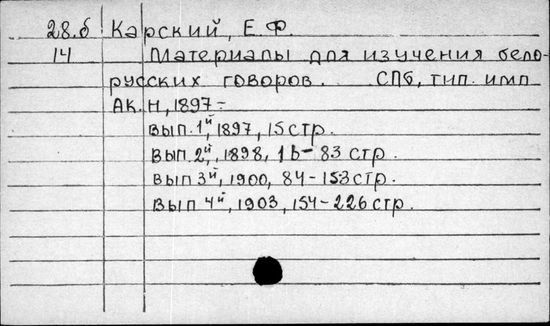 28.б Карский, Е.Ф.
14 Материалы для изучения бело-
русских говоров. СПб, тип. имп
Ак. Н, 1897-
вып. 1й, 1897, 15 стр.
Вып. 2й, 1898, 16-83 стр.
Вып 3й, 1900, 84-153 стр.
Вып 4й, 1903, 154-226 стр.